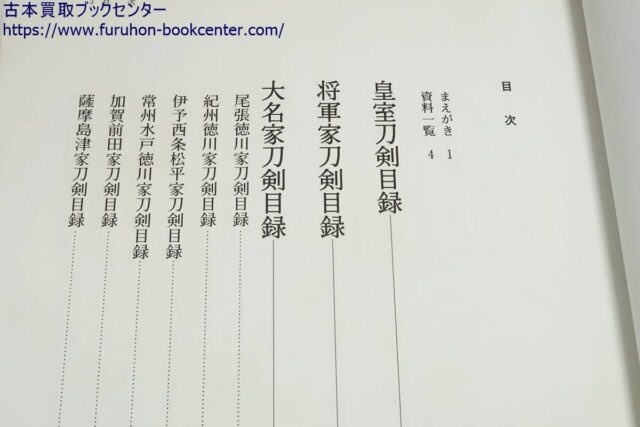 古本買取ブックセンター
https://www.furuhon-bookcenter.com/
目次
まえがき 1
資料一覧 4
皇室刀剣目録
将軍家刀剣目録
大名家刀剣目録
尾張徳川家刀剣目録
紀州徳川家刀剣目録
伊予西条松平家刀剣目録
常州水戸徳川家刀剣目録
加賀前田家刀剣目録
薩摩島津家刀剣目録